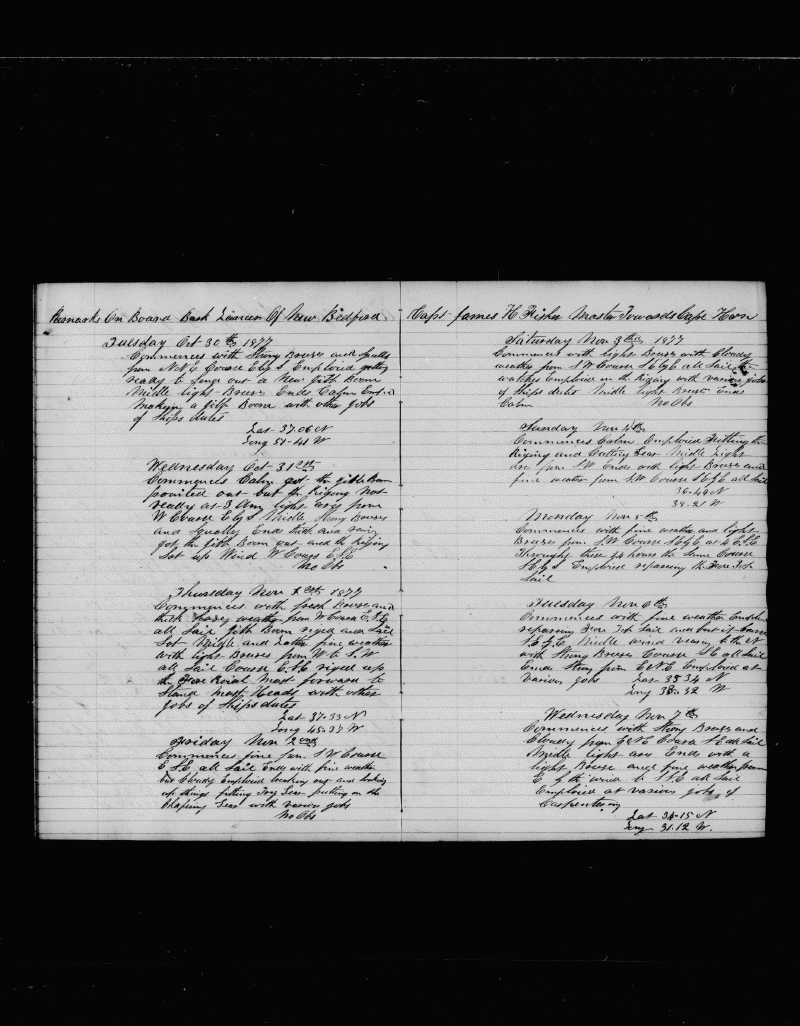 Remarks On Board Bark Of New Bedford
Tuesday Oct 30th 1877
Commences with Strong Breeses and Squalls
from NNE Course E by S Employed getting
ready to out a New Jibb Boom
Middle light Breeses Ends Calm Emp
Making a Jibb Boom with other Jobs
of Ships duties
Lat 37.06 N
Long 51-41 W
Wednesday Oct 31st
Commences Calm got the Jibb Boom
pointed out but the Riging Not
ready at 3 Am light airs from
W Course E by S Middle Strong Breeses
and Squally Ends thick and rain
got the Jibb Boom out and the Riging
Set up Wind W Course
No Obs
Thursday Nov 1st 1877
Commences with fresh Breeses and
thick weather from W Course
all Sail Jibb Boom riged and Sail
Set Middle and Latter fine weather
with light Breeses from W to S.W
all Sail Course riged up
the Fore Roial Mast forward to
Stand Mast Heads with other
Jobs of Ships duties
Lat 37-33 N
Long 45-37 W
Friday Nov 2nd
Commences fine from SW Course
all Sail Ends with fine weather
but Cloudy Employed breaking out and
up things fitting Gear putting on the
Gear with various Jobs
No Obs
Capt James H Fisher Master Towards Cape Horn
Saturday Nov 3th 1877
Commences with light Breeses with Cloudy
weather from SW Course all Sail the
watches Employed in the Riging with various Jobs
of Ships duties Middle light Breeses Ends
Calm No Obs
Sunday Nov 4th
Commences Calm Employed Fitting the
Riging and Cutting Gear Middle Light
from SW Ends with light Breeses and
fine weather from SW Course all Sail
36-48 N
38-21 W
Monday Nov 5th
Commences with fine weather and light
Breeses from SW Course
Throught these 24 hours the Same Course
Employed repairing the Fore Top
Sail
Tuesday Nov 6th
Commences with fine weather Employed
repairing Fore Top Sail and
Middle wind to the N
with Strong Breeses Course all Sail
Ends Strong from Employed at
Various Jobs Lat 35 34 N
Long 33-32 W
Wednesday Nov 7th
Commences with Strong Breeses and
Cloudy from Course all Sail
Middle light Ends with a
light Breese and fine weather from
the wind to all Sail
Employed at various Jobs of
Carpentering
Lat 34-15 N
Long 31.12 W.